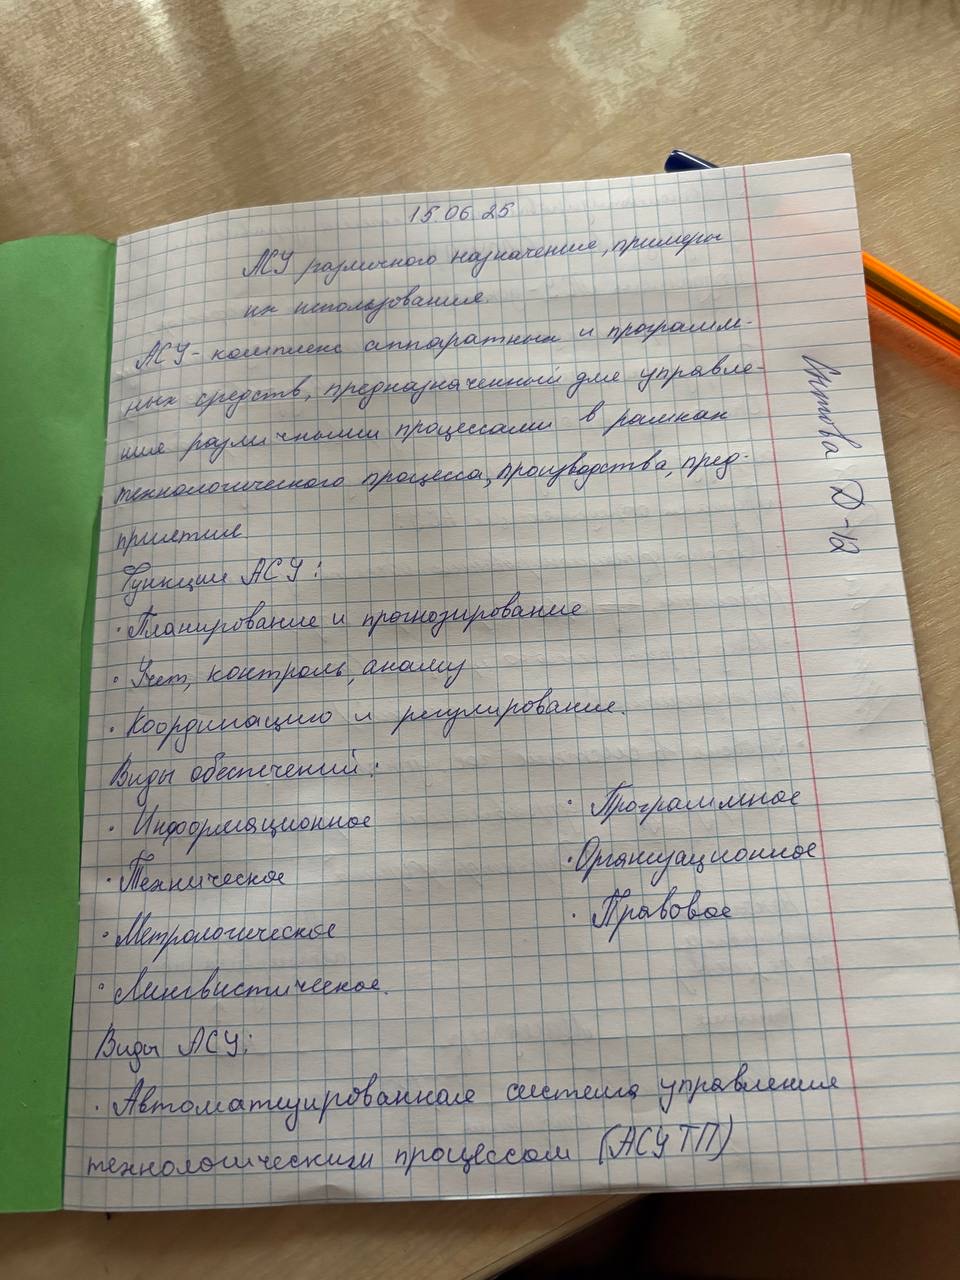 15.06.25
АСУ различного назначение, примеры
их использования.
АСУ - комплекс аппаратных и программ-
ных средств, предназначенный для управле-
ния различными процессами в рамках
технологического процесса, производства, пред-
приятия
Функции АСУ:
· Планирование и прогнозирование
· Учет, контроль, анализ
· Координацию и регулирование.
Виды обеспечений:
· Информационное
· Программное
· Техническое
· Организационное
· Метрологическое
· Правовое
· Лингвистическое.
Виды АСУ:
· Автоматизированная система управления
технологическим процессом (АСУ ТП)
Д-12